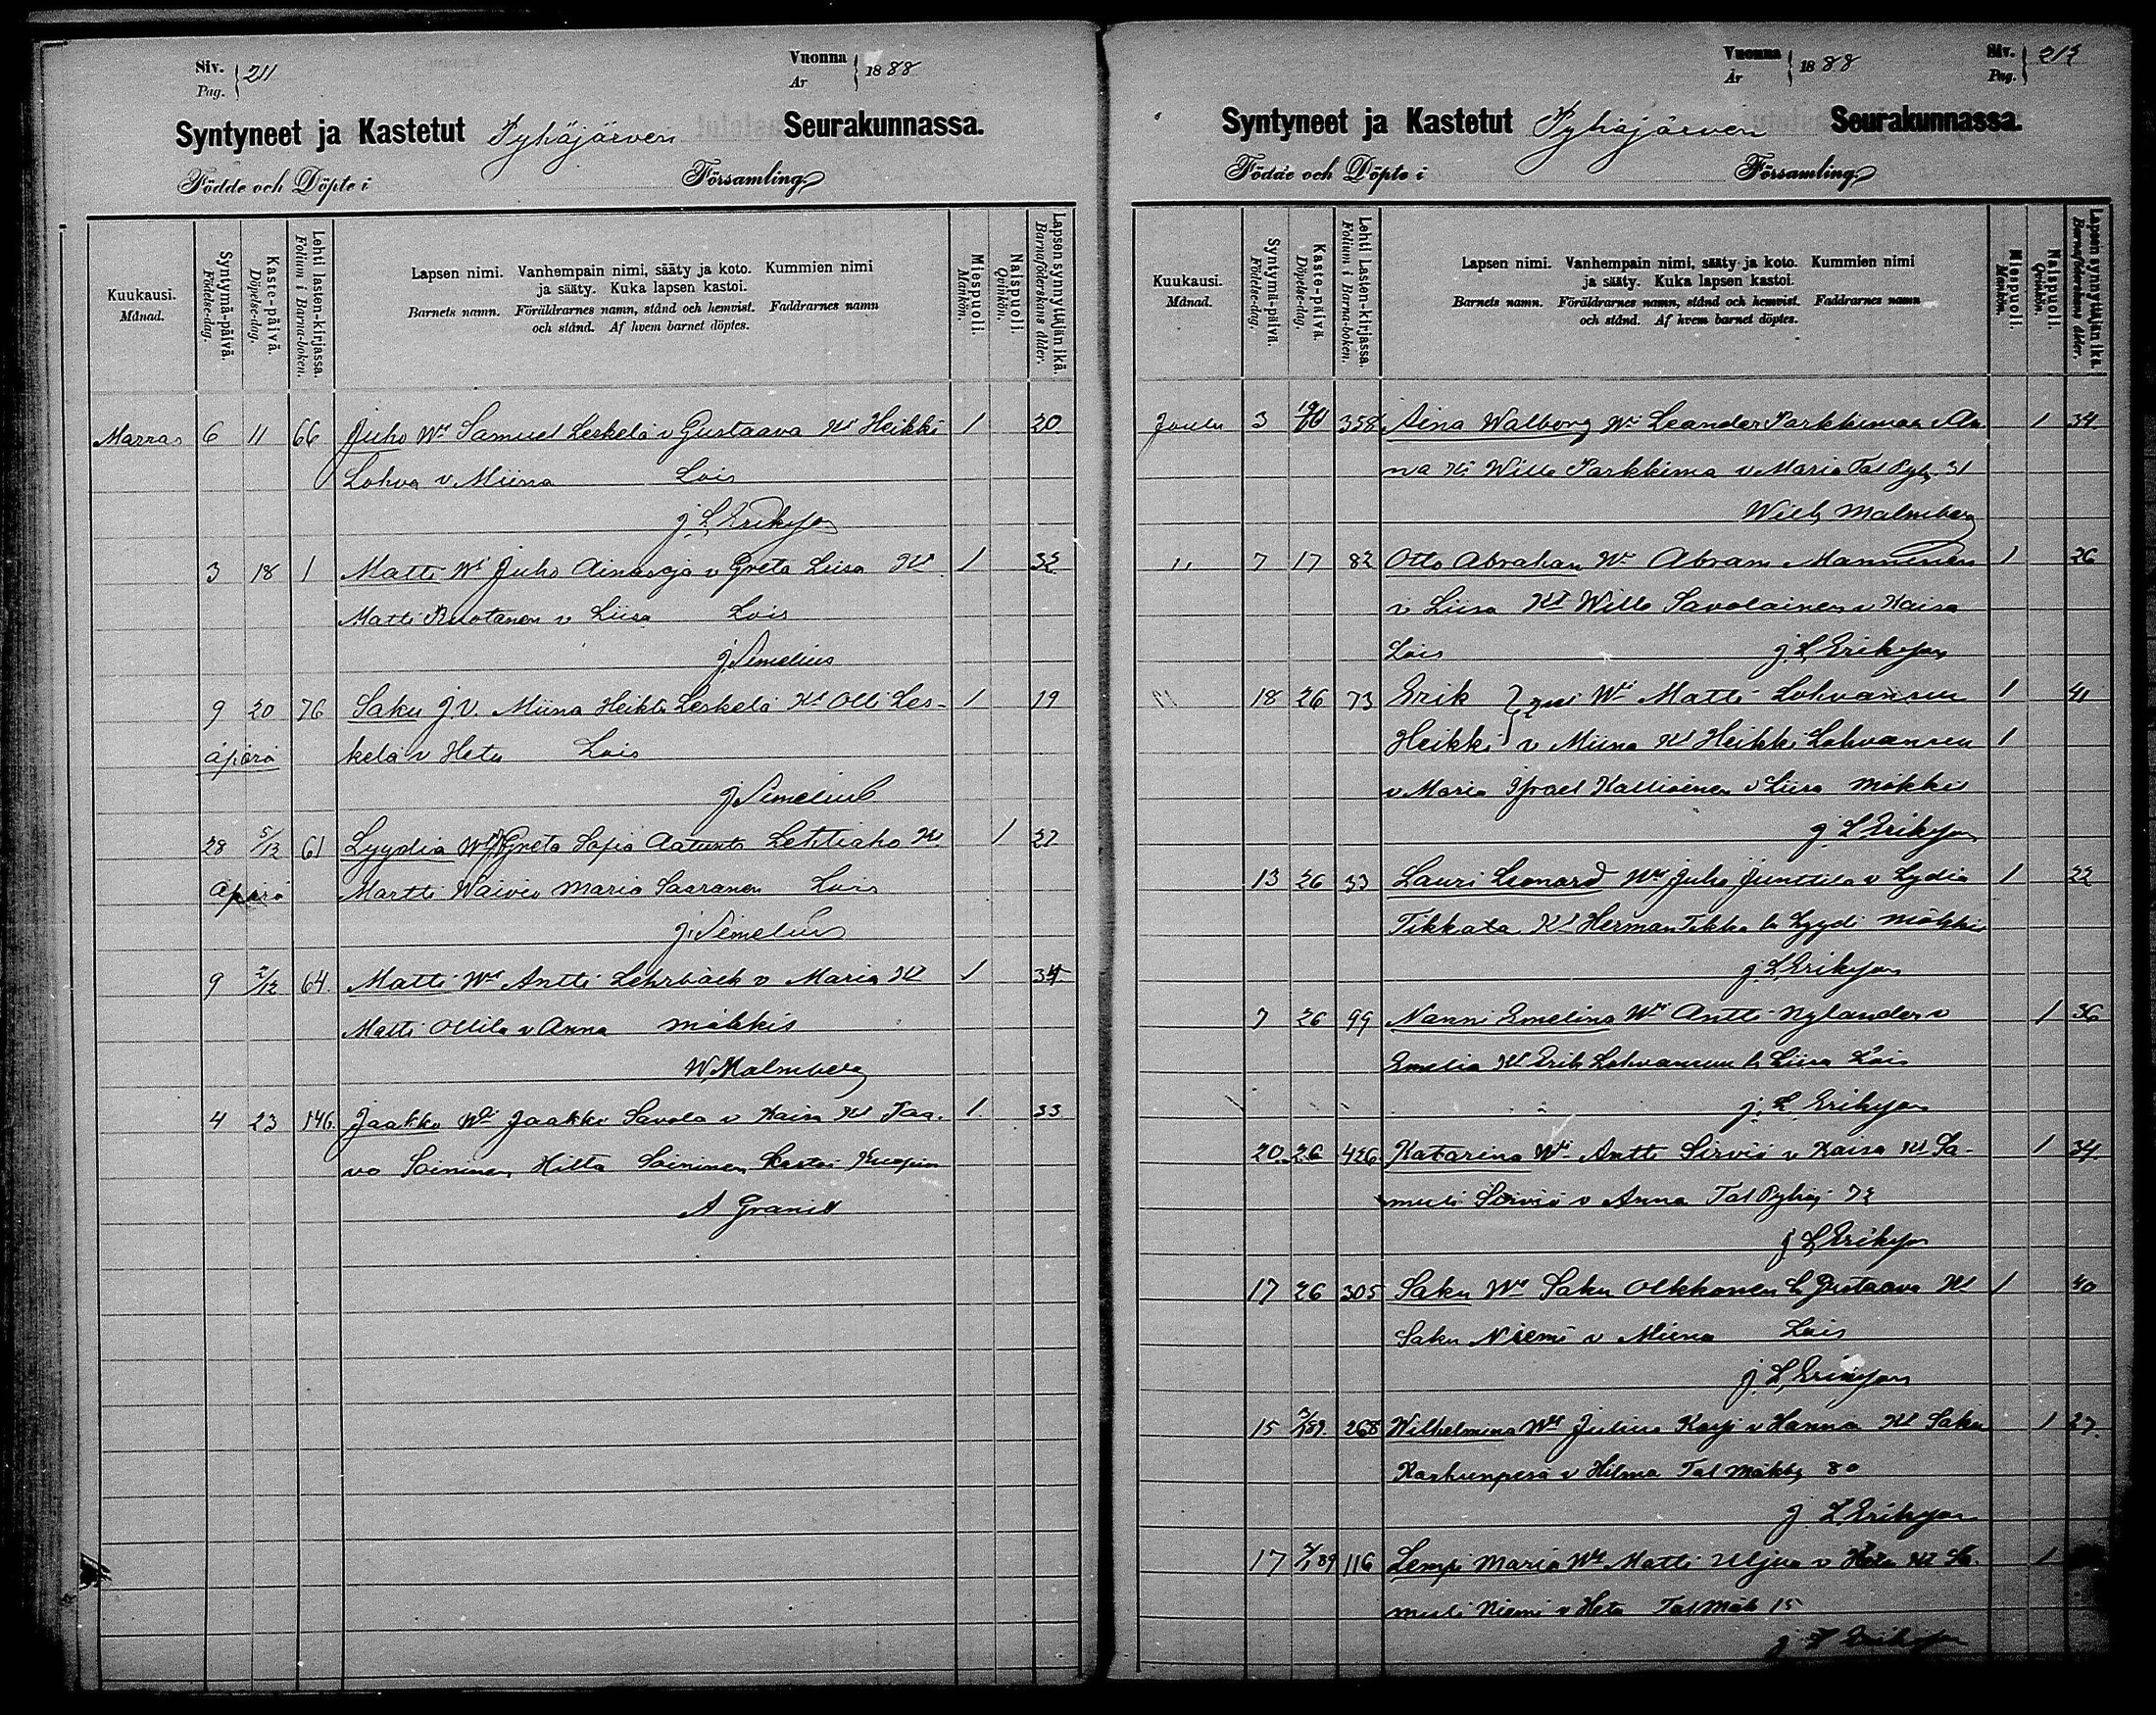 Siv. Pag. 211
Vuonna År 1888
Syntyneet ja Kastetut Pyhäjärven Seurakunnassa.
Födde och Döpte i Församling
Kuukausi. Månad.
Syntymä-päivä. Födelse-dag.
Kaste-päivä. Döpelse-dag.
Lehti lasten-kirjassa. Folium i Barna-boken.
Lapsen nimi. Vanhempain nimi, sääty ja koto. Kummien nimi
ja sääty. Kuka lapsen kastoi.
Barnets namn. Föräldrarnes namn, stånd och hemvist. Faddrarnes namn
och stånd. Af hvem barnet döptes.
Miespuoli. Mankön.
Naispuoli. Qvinkön.
Lapsen synnyttäjän ikä. Barnaföderskans ålder.
Marras 6 11 66 Juho Wt Samuel Leskelä v Gustaava Kt Heikki 1 20
Lohva v Miina Lois
J. L. Erikson
3 18 1 Matti Wt Juho Ainasoja v Greta Liisa Kt 1 32
Matti Ruotanen v Liisa Lois
J Simelius
9 20 76 Saku J.V. Miina Heikki Leskelä Kt Olli Les- 1 19
äpärä kelä v Heta Lois
J Simelius
28 5/12 61 Lyydia Greta Sofia Lehtiaho Kt 1 27
äpärä Martti Maria Saaranen Lois
J. Simelius
9 2/12 64. Matti Wt Antti Lehrbäck v Maria Kt 1 34
Matti Ollila v Anna mökkis
W. Malmberg
4 23 146. Jaakko Wt Jaakko Savola v Kaisa Kt Taa- 1. 33
vo Soininen Hilta Soininen kastoi Kuopion
A Granit
Vuonna År 1888
Siv. Pag. 212
Syntyneet ja Kastetut Pyhäjärven Seurakunnassa.
Födde och Döpte i Församling
Kuukausi. Månad.
Syntymä-päivä. Födelse-dag.
Kaste-päivä. Döpelse-dag.
Lehti Lasten-kirjassa. Folium i Barna-boken.
Lapsen nimi. Vanhempain nimi, sääty ja koto. Kummien nimi
ja sääty. Kuka lapsen kastoi.
Barnets namn. Föräldrarnes namn, stånd och hemvist. Faddrarnes namn
och stånd. Af hvem barnet döptes.
Miespuoli. Mankön.
Naispuoli. Qvinkön.
Lapsen synnyttäjän ikä. Barnaföderskans ålder.
Joulu 3 358 Aina Walborg Wt Leander Parkkimaa v An 1 34
na Kt Wille Parkkima v Maria Tal Pyh. 31
Wilh Malmberg
" 7 17 82 Otto Abraham Wt Abram Manninen 1 26
v Liisa Kt Wille Savolainen v Kaisa
Lois J. L. Erikson
" 18 26 73 Erik Wt Matti Lohvansuu 1 41
Heikki v Miina Kt Heikki Lohvansuu 1
v Maria Israel Kallioinen v Liisa mökkis
J. L. Erikson
13 26 33 Lauri Leonard Wt Juho Junttila v Lydia 1 22
Tikkata Kt Herman Tikka h Lyydi mökkis
J. L. Erikson
7 26 99 Nanni Emelina Wt Antti Nylander v 1 36
Emelia Kt Erik Lohvansuu h Liisa Lois
J. L. Erikson
20 26 426 Katarina Wt Antti Sirviö v Kaisa Kt Sa- 1 34.
muli Sirviö v Anna Tal Pyhäj 72
J L Erikson
17 26 305 Saku Wt Saku Olkkonen h Gustaava Kt 1 40
Saku Niemi v Miina Lois
J. L. Erikson
15 268 Wilhelmina Wt Julius Karpi v Hanna Kt Saku 1 27.
Karhunperä v Hilma Tal Mäkky 80
J. L. Erikson
17 116 Lempi Maria Wt Matti Uljua v Heta Kt Sa- 1
muli Niemi v Heta Tal Mäk 15
J L Erikson